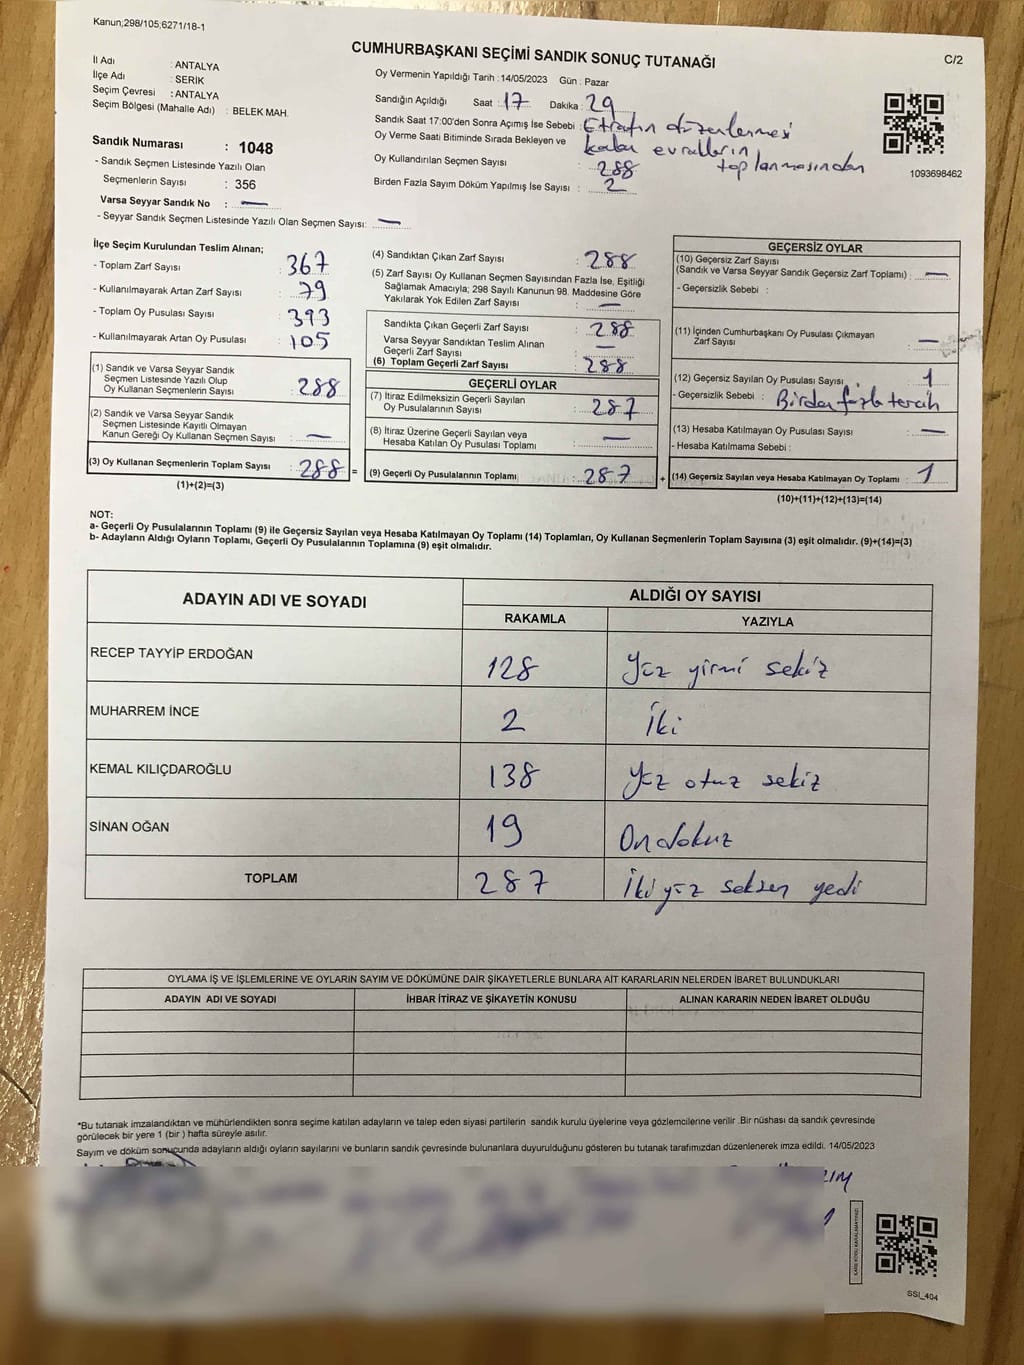 Kanun;298/105;6271/18-1
CUMHURBAŞKANI SEÇİMİ SANDIK SONUÇ TUTANAĞI
C/2
İl Adı : ANTALYA
İlçe Adı : SERİK
Seçim Çevresi : ANTALYA
Seçim Bölgesi (Mahalle Adı) : BELEK MAH.
Sandık Numarası : 1048
- Sandık Seçmen Listesinde Yazılı Olan
Seçmenlerin Sayısı : 356
Varsa Seyyar Sandık No : —
- Seyyar Sandık Seçmen Listesinde Yazılı Olan Seçmen Sayısı: —
Oy Vermenin Yapıldığı Tarih : 14/05/2023 Gün : Pazar
Sandığın Açıldığı Saat : 17 Dakika : 29
Sandık Saat 17:00'den Sonra Açımış İse Sebebi : Etrafın düzenlenmesi
kalan evrakların toplanmasından
Oy Verme Saati Bitiminde Sırada Bekleyen ve
Oy Kullandırılan Seçmen Sayısı : 288
Birden Fazla Sayım Döküm Yapılmış İse Sayısı : 2
1093698462
İlçe Seçim Kurulundan Teslim Alınan;
- Toplam Zarf Sayısı : 367
- Kullanılmayarak Artan Zarf Sayısı : 79
- Toplam Oy Pusulası Sayısı : 393
- Kullanılmayarak Artan Oy Pusulası : 105
(1) Sandık ve Varsa Seyyar Sandık
Seçmen Listesinde Yazılı Olup
Oy Kullanan Seçmenlerin Sayısı : 288
(2) Sandık ve Varsa Seyyar Sandık
Seçmen Listesinde Kayıtlı Olmayan
Kanun Gereği Oy Kullanan Seçmen Sayısı : —
(3) Oy Kullanan Seçmenlerin Toplam Sayısı : 288 =
(1)+(2)=(3)
(4) Sandıktan Çıkan Zarf Sayısı : 288
(5) Zarf Sayısı Oy Kullanan Seçmen Sayısından Fazla İse, Eşitliği
Sağlamak Amacıyla; 298 Sayılı Kanunun 98. Maddesine Göre
Yakılarak Yok Edilen Zarf Sayısı : —
Sandıkta Çıkan Geçerli Zarf Sayısı : 288
Varsa Seyyar Sandıktan Teslim Alınan
Geçerli Zarf Sayısı : —
(6) Toplam Geçerli Zarf Sayısı : 288
GEÇERLİ OYLAR
(7) İtiraz Edilmeksizin Geçerli Sayılan
Oy Pusulalarının Sayısı : 287
(8) İtiraz Üzerine Geçerli Sayılan veya
Hesaba Katılan Oy Pusulası Toplamı : —
(9) Geçerli Oy Pusulalarının Toplamı : 287 +
GEÇERSİZ OYLAR
(10) Geçersiz Zarf Sayısı
(Sandık ve Varsa Seyyar Sandık Geçersiz Zarf Toplamı) : —
- Geçersizlik Sebebi :
(11) İçinden Cumhurbaşkanı Oy Pusulası Çıkmayan
Zarf Sayısı : —
(12) Geçersiz Sayılan Oy Pusulası Sayısı : 1
- Geçersizlik Sebebi : Birden fazla tercih
(13) Hesaba Katılmayan Oy Pusulası Sayısı : —
- Hesaba Katılmama Sebebi :
(14) Geçersiz Sayılan veya Hesaba Katılmayan Oy Toplamı : 1
(10)+(11)+(12)+(13)=(14)
NOT:
a- Geçerli Oy Pusulalarının Toplamı (9) ile Geçersiz Sayılan veya Hesaba Katılmayan Oy Toplamı (14) Toplamları, Oy Kullanan Seçmenlerin Toplam Sayısına (3) eşit olmalıdır. (9)+(14)=(3)
b- Adayların Aldığı Oyların Toplamı, Geçerli Oy Pusulalarının Toplamına (9) eşit olmalıdır.
ADAYIN ADI VE SOYADI
ALDIĞI OY SAYISI
RAKAMLA YAZIYLA
RECEP TAYYİP ERDOĞAN 128 Yüz yirmi sekiz
MUHARREM İNCE 2 İki
KEMAL KILIÇDAROĞLU 138 Yüz otuz sekiz
SİNAN OĞAN 19 Ondokuz
TOPLAM 287 İkiyüz seksen yedi
OYLAMA İŞ VE İŞLEMLERİNE VE OYLARIN SAYIM VE DÖKÜMÜNE DAİR ŞİKAYETLERLE BUNLARA AİT KARARLARIN NELERDEN İBARET BULUNDUKLARI
ADAYIN ADI VE SOYADI İHBAR İTİRAZ VE ŞİKAYETİN KONUSU ALINAN KARARIN NEDEN İBARET OLDUĞU
*Bu tutanak imzalandıktan ve mühürlendikten sonra seçime katılan adayların ve talep eden siyasi partilerin sandık kurulu üyelerine veya gözlemcilerine verilir .Bir nüshası da sandık çevresinde
görülecek bir yere 1 (bir ) hafta süreyle asılır.
Sayım ve döküm sonucunda adayların aldığı oyların sayılarını ve bunların sandık çevresinde bulunanlara duyurulduğunu gösteren bu tutanak tarafımızdan düzenlenerek imza edildi. 14/05/2023
SSI_404